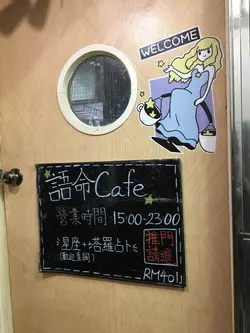 WELCOME
語命Cafe
營業時間:15:00-23:00
星座·塔羅占卜
(歡迎查詢)
推門
請進
RM401